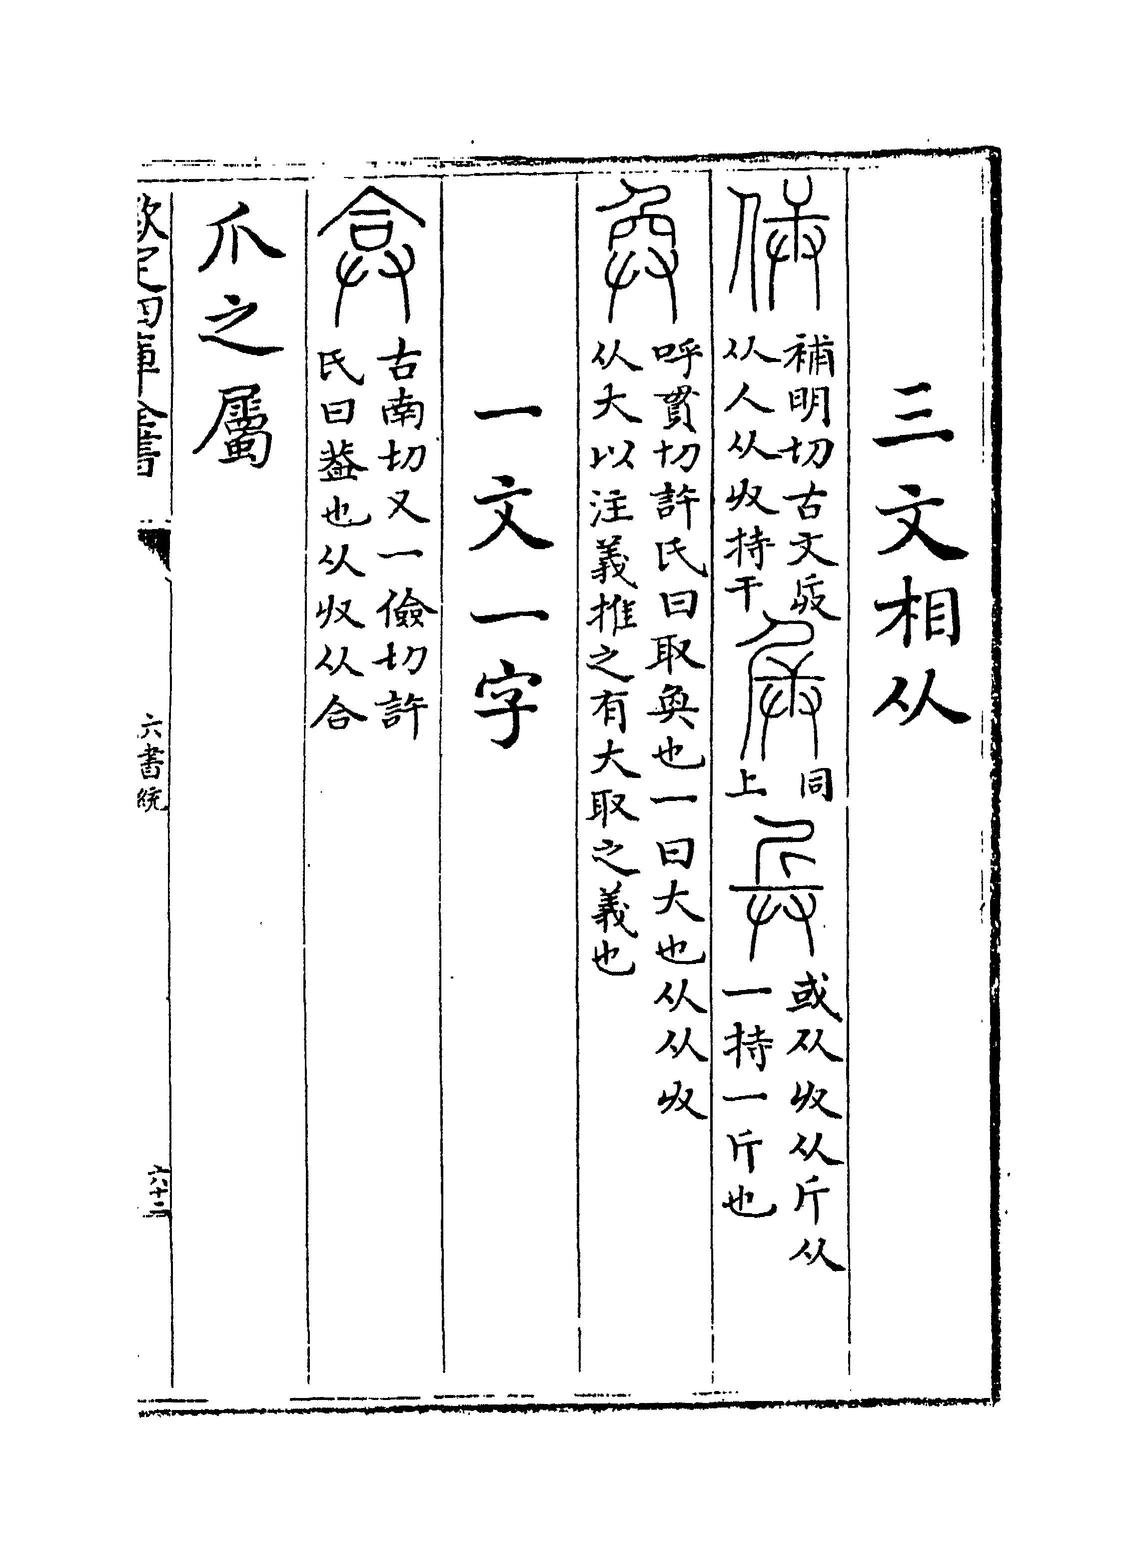 三文相从
補明切古文
从人从収持干
同
上
或从収从斤从
一持一斤也
呼貫切許氏曰取奐也一曰大也从从収
从大以注義推之有大取之義也
一文一字
古南切又一儉切許
氏曰葢也从収从合
爪之屬
欽定四庫全書
六書統
六十二